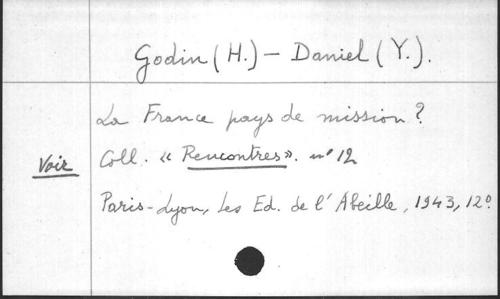 Godin (H.) - Daniel (Y.).
La France pays de mission ?
Voir Coll. « Rencontres ». n° 12
Paris-Lyon, Les Ed. de l'Abeille, 1943, 12°